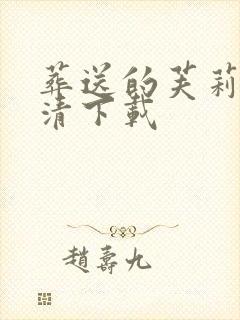 葬送的芙莉
清下载
趙壽九